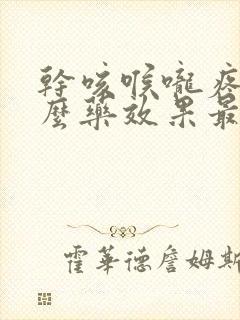 幹咳喉嚨疼
麼藥效果最
霍華德詹姆斯